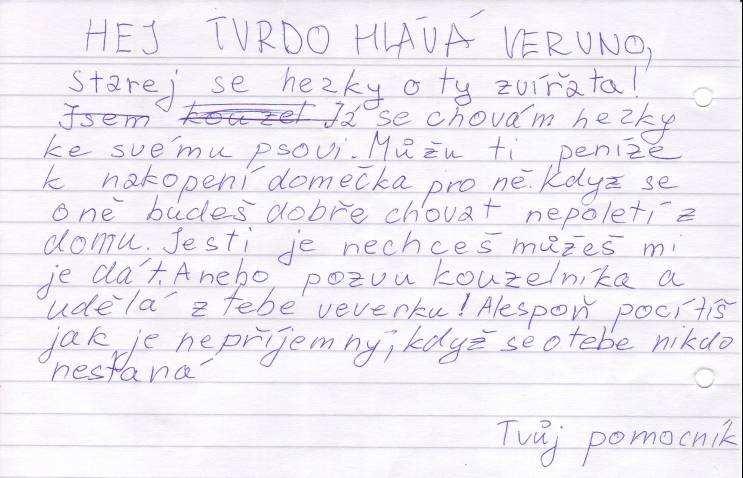 HEJ TVRDO HLÁVÁ VERUNO,
Starej se hezky o ty zvířata!
Jsem kouzel Já se chovám hezky
ke svému psovi. Můžu ti peníze
k nakopení domečka pro ně. když se
o ně budeš dobře chovat nepoletí z
domu. Jesti je nechceš můžeš mi
je dát. Anebo pozvu kouzelníka a
udělá z tebe veverku! Alespoň pocítíš
jak je nepříjemný, když se o tebe nikdo
nestáná
Tvůj pomocník